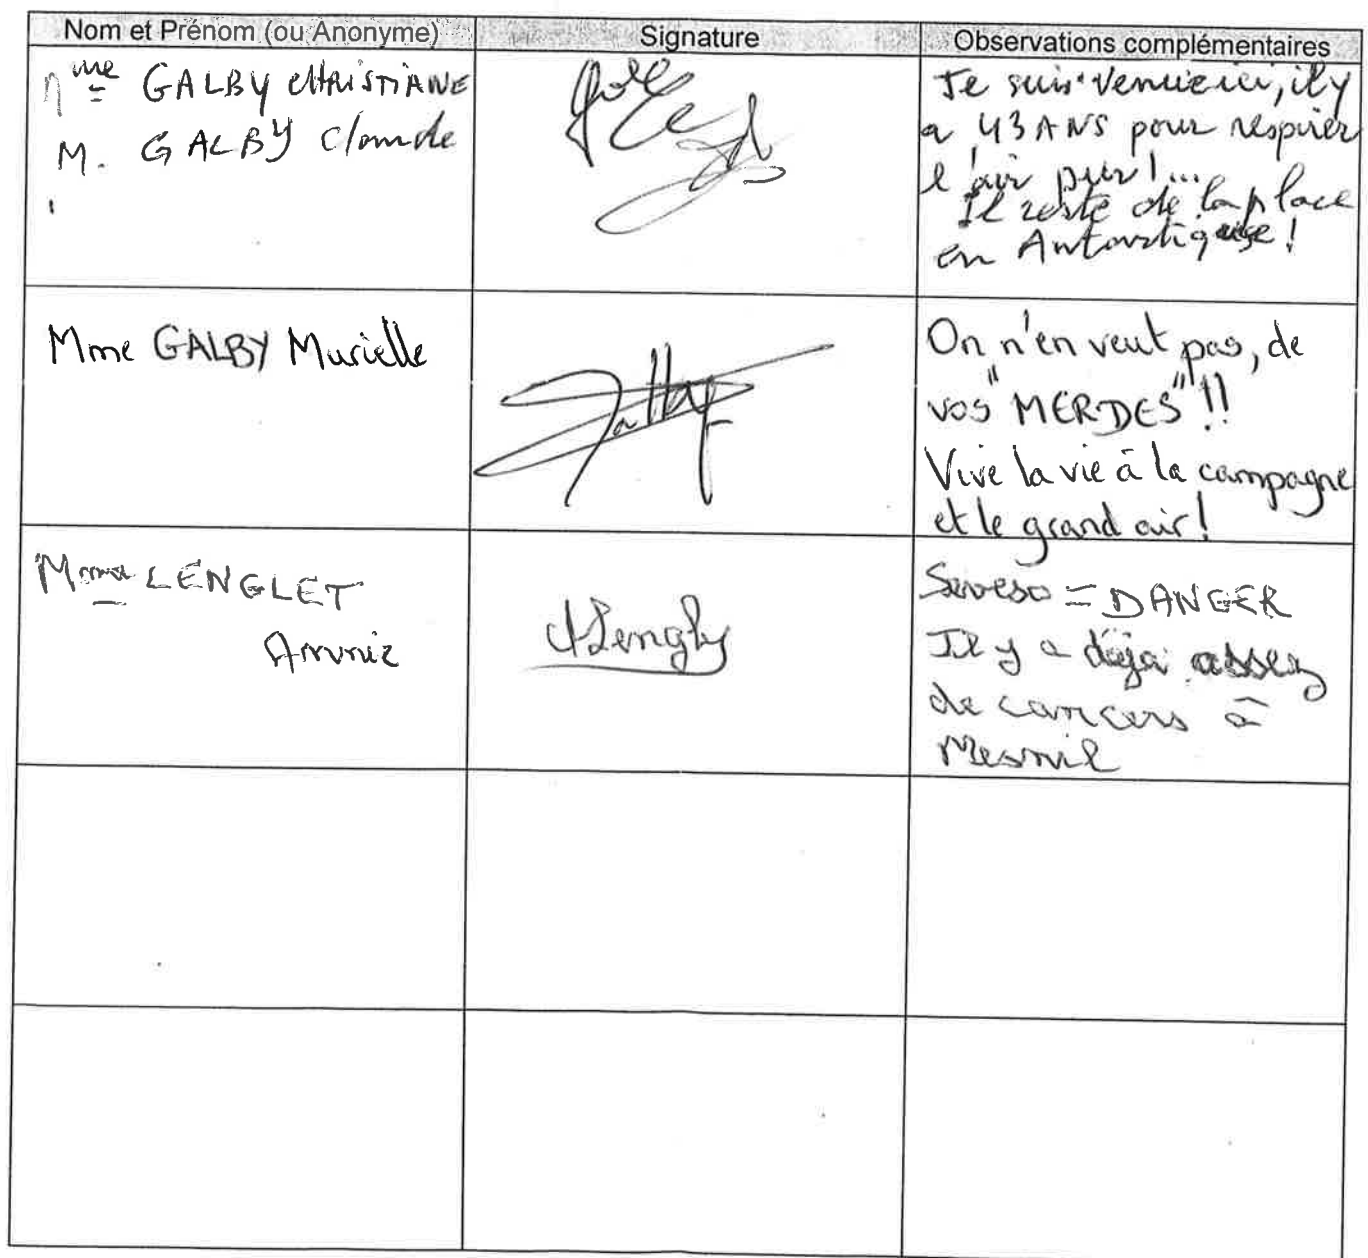 Nom et Prénom (ou Anonyme)
Signature
Observations complémentaires
Mme GALBY CHRISTIANE
M. GALBY Claude
Je suis venue ici, il y
a 43 ANS pour respirer
l'air pur !...
Il reste de la place
en Antarctique !
Mme GALBY Murielle
On n'en veut pas, de
vos "MERDES" !!
Vive la vie à la campagne
et le grand air !
Mme LENGLET
Annie
Seveso = DANGER
Il y a déja assez
de cancers à
Mesnil